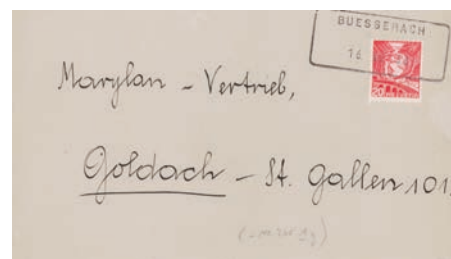 BUESSERACH
16.
20
Marylan - Vertrieb,
Goldach - St. Gallen 101.